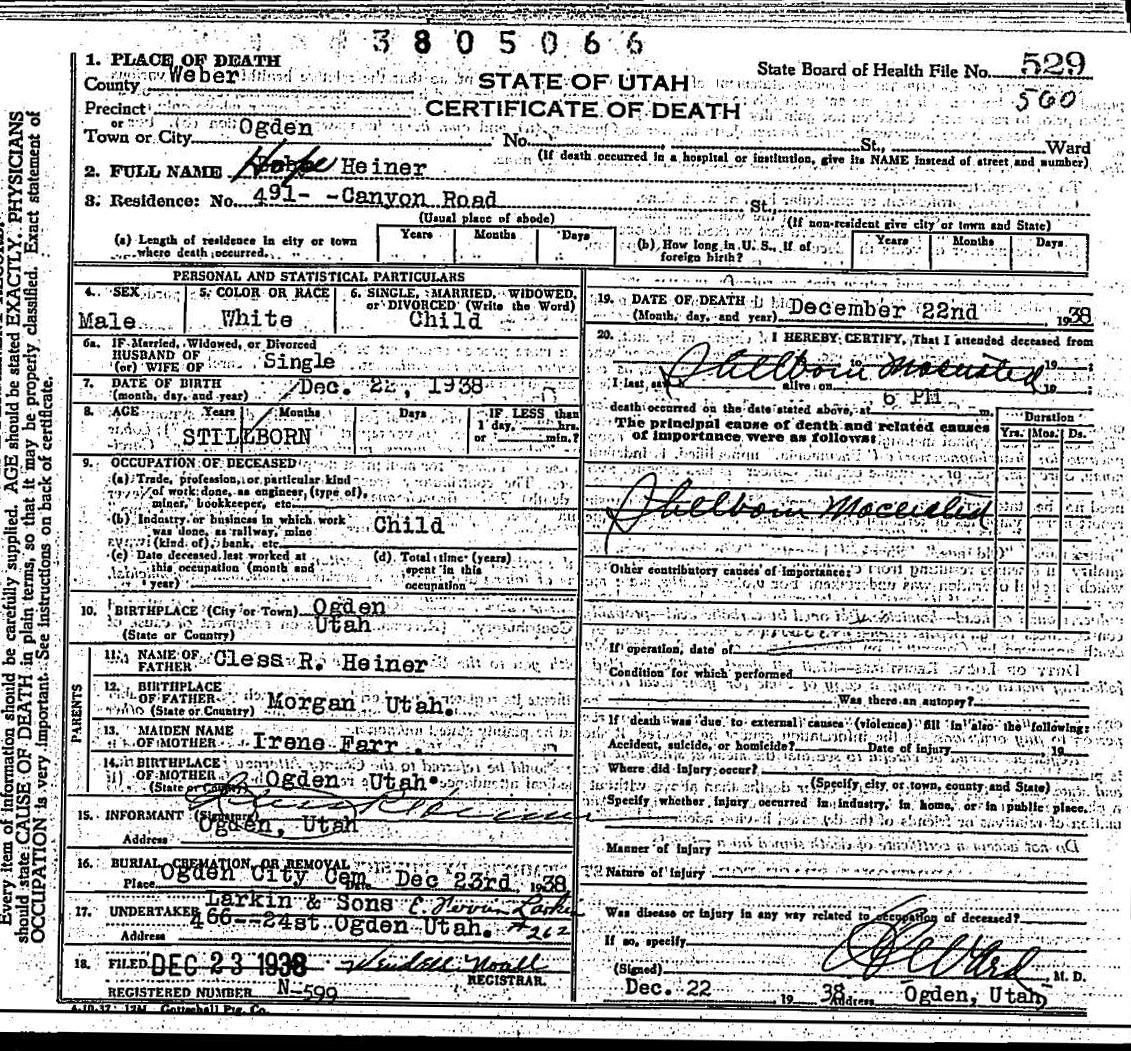 3805066
1. PLACE OF DEATH
County Weber
STATE OF UTAH
CERTIFICATE OF DEATH
State Board of Health File No. 529
500
Precinct
or
Town or City Ogden No. St., Ward
(If death occurred in a hospital or institution, give its NAME instead of street and number)
2. FULL NAME Heiner
3. Residence: No. 491- -Canyon Road St.
(Usual place of abode) (If non-resident give city or town and State)
(a) Length of residence in city or town where death occurred. Years Months Days
(b) How long in U. S., if of foreign birth? Years Months Days
PERSONAL AND STATISTICAL PARTICULARS
4. SEX Male
5. COLOR OR RACE White
6. SINGLE, MARRIED, WIDOWED, or DIVORCED (Write the Word) Child
6a. If Married, Widowed, or Divorced
HUSBAND OF
(or) WIFE OF Single
7. DATE OF BIRTH
(month, day, and year) Dec. 22, 1938
8. AGE Years Months Days IF LESS than
1 day, hrs.
or min.?
STILLBORN
9. OCCUPATION OF DECEASED
(a) Trade, profession, or particular kind
of work done, as engineer, (type of),
miner, bookkeeper, etc.
(b) Industry or business in which work
was done, as railway, mine
(kind of), bank, etc. Child
(c) Date deceased last worked at
this occupation (month and
year)
(d) Total time (years)
spent in this
occupation
10. BIRTHPLACE (City or Town) Ogden
(State or Country) Utah
PARENTS
11. NAME OF
FATHER Cless R. Heiner
12. BIRTHPLACE
OF FATHER
(State or Country) Morgan Utah.
13. MAIDEN NAME
OF MOTHER Irene Farr.
14. BIRTHPLACE
OF MOTHER
(State or Country) Ogden Utah.
15. INFORMANT (Signature)
Address Ogden, Utah
16. BURIAL, CREMATION, OR REMOVAL
Place Ogden City Cem Date Dec 23rd, 1938
17. UNDERTAKER Larkin & Sons E. Larkin
Address 466--24st Ogden Utah. #262
18. FILED DEC 23 1938 Wendell Noall
REGISTRAR.
REGISTERED NUMBER N-599
4-10-37 12M Gottschall Ptg. Co.
19. DATE OF DEATH
(Month, day, and year) December 22nd, 1938
20. I HEREBY CERTIFY, That I attended deceased from
Stillborn Macerated
19
I last saw alive on 19
death occurred on the date stated above, at 6 PM m.
The principal cause of death and related causes
of importance were as follows:
Duration
Yrs. Mos. Ds.
Stillborn Macerated
Other contributory causes of importance:
If operation, date of
Condition for which performed
Was there an autopsy?
If death was due to external causes (violence) fill in also the following:
Accident, suicide, or homicide? Date of injury 19
Where did injury occur?
(Specify city, or town, county and State)
Specify whether injury occurred in industry, in home, or in public place.
Manner of injury
Nature of Injury
Was disease or injury in any way related to occupation of deceased?
If so, specify
(Signed) Ward M. D.
Dec. 22 1938 Address Ogden, Utah
Every item of information should be carefully supplied. AGE should be stated EXACTLY. PHYSICIANS
should state CAUSE OF DEATH in plain terms, so that it may be properly classified. Exact statement of
OCCUPATION is very important. See instructions on back of certificate.